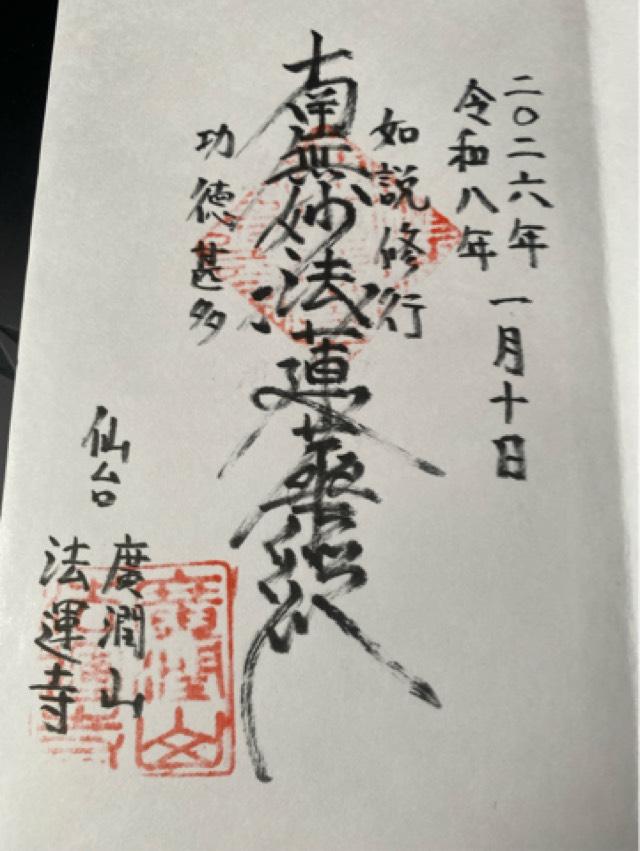 二〇二六年
令和八年 一月十日
如説修行
南無妙法蓮華経
功徳甚多
仙台 廣潤山
法運寺
廣潤山